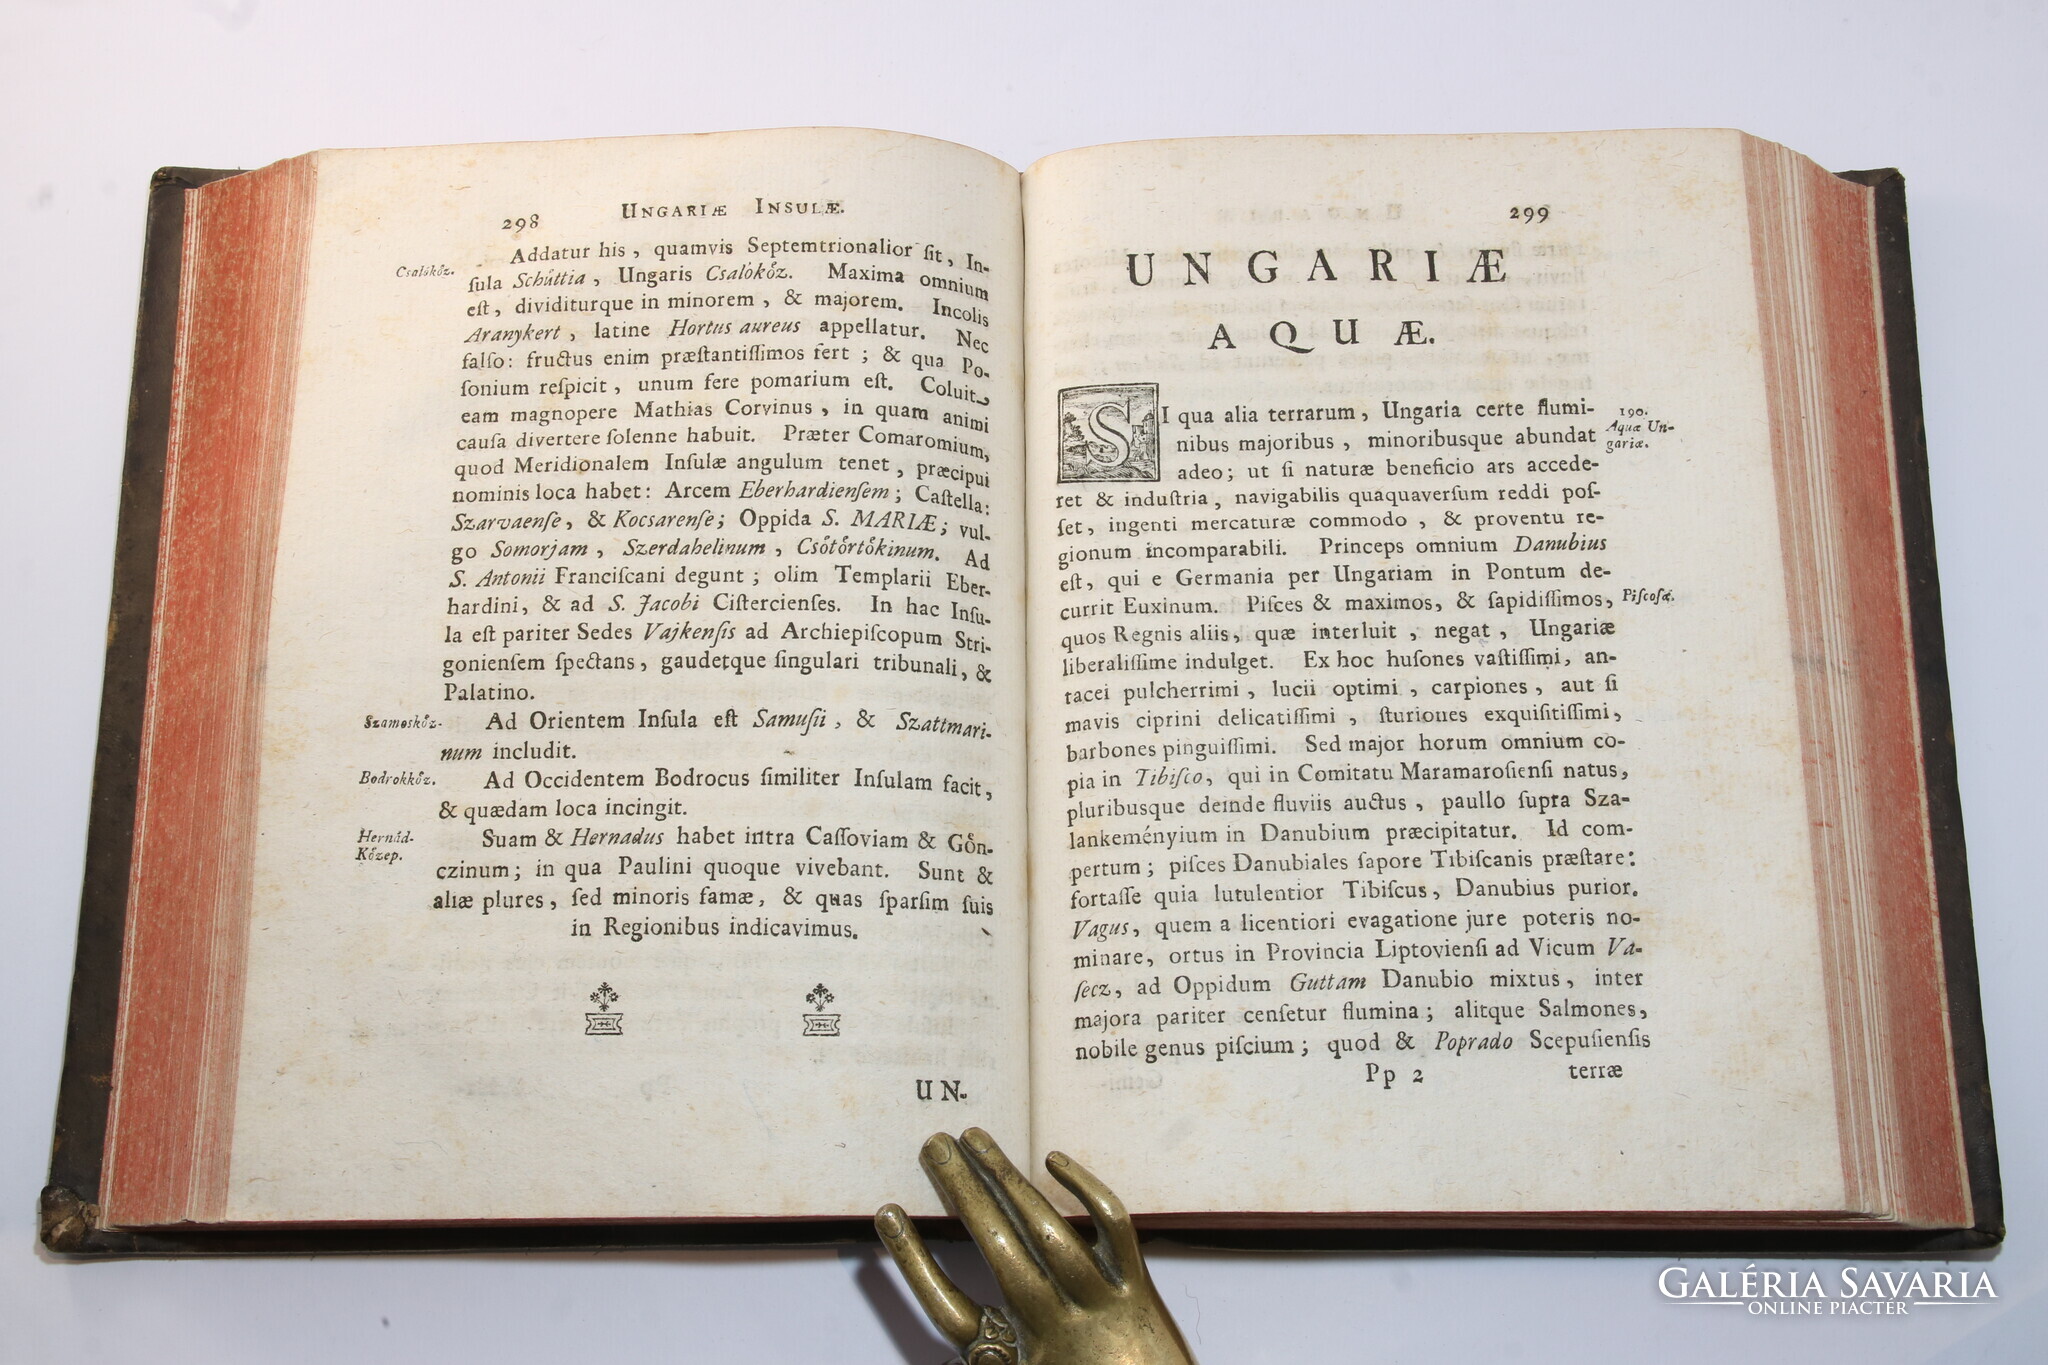 298
UNGARIÆ INSULÆ.
Addatur his, quamvis Septemtrionalior ſit, In-
Csalòkőz.
ſula Schüttia, Ungaris Csalòkőz. Maxima omnium
eſt, dividiturque in minorem, & majorem. Incolis
Aranykert, latine Hortus aureus appellatur. Nec
falſo: fructus enim præſtantiſſimos fert; & qua Po-
ſonium reſpicit, unum fere pomarium eſt. Coluit
eam magnopere Mathias Corvinus, in quam animi
cauſa divertere ſolenne habuit. Præter Comaromium,
quod Meridionalem Inſulæ angulum tenet, præcipui
nominis loca habet: Arcem Eberhardienſem; Caſtella:
Szarvaenſe, & Kocsarenſe; Oppida S. MARIÆ; vul-
go Somorjam, Szerdahelinum, Csőtőrtőkinum. Ad
S. Antonii Franciſcani degunt; olim Templarii Eber-
hardini, & ad S. Jacobi Ciſtercienſes. In hac Inſu-
la eſt pariter Sedes Vajkenſis ad Archiepiſcopum Stri-
gonienſem ſpectans, gaudetque ſingulari tribunali, &
Palatino.
Szamoskőz.
Ad Orientem Inſula eſt Samuſii, & Szattmari-
num includit.
Bodrokkőz.
Ad Occidentem Bodrocus ſimiliter Inſulam facit,
& quædam loca incingit.
Hernád-
Kőzep.
Suam & Hernadus habet intra Caſſoviam & Gőn-
czinum; in qua Paulini quoque vivebant. Sunt &
aliæ plures, ſed minoris famæ, & quas ſparſim ſuis
in Regionibus indicavimus.
UN-
299
UNGARIÆ
AQUÆ.
SI qua alia terrarum, Ungaria certe flumi-
nibus majoribus, minoribusque abundat
190.
Aquæ Un-
gariæ.
adeo; ut ſi naturæ beneficio ars accede-
ret & induſtria, navigabilis quaquaverſum reddi poſ-
ſet, ingenti mercaturæ commodo, & proventu re-
gionum incomparabili. Princeps omnium Danubius
eſt, qui e Germania per Ungariam in Pontum de-
currit Euxinum. Piſces & maximos, & ſapidiſſimos,
Piſcoſæ.
quos Regnis aliis, quæ interluit, negat, Ungariæ
liberaliſſime indulget. Ex hoc huſones vaſtiſſimi, an-
tacei pulcherrimi, lucii optimi, carpiones, aut ſi
mavis ciprini delicatiſſimi, ſturiones exquiſitiſſimi,
barbones pinguiſſimi. Sed major horum omnium co-
pia in Tibiſco, qui in Comitatu Maramaroſienſi natus,
pluribusque deinde fluviis auctus, paullo ſupra Sza-
lankeményium in Danubium præcipitatur. Id com-
pertum; piſces Danubiales ſapore Tibiſcanis præſtare:
fortaſſe quia lutulentior Tibiſcus, Danubius purior.
Vagus, quem a licentiori evagatione jure poteris no-
minare, ortus in Provincia Liptovienſi ad Vicum Va-
ſecz, ad Oppidum Guttam Danubio mixtus, inter
majora pariter cenſetur flumina; alitque Salmones,
nobile genus piſcium; quod & Poprado Scepuſienſis
Pp 2
terræ
GALÉRIA SAVARIA
ONLINE PIACTÉR